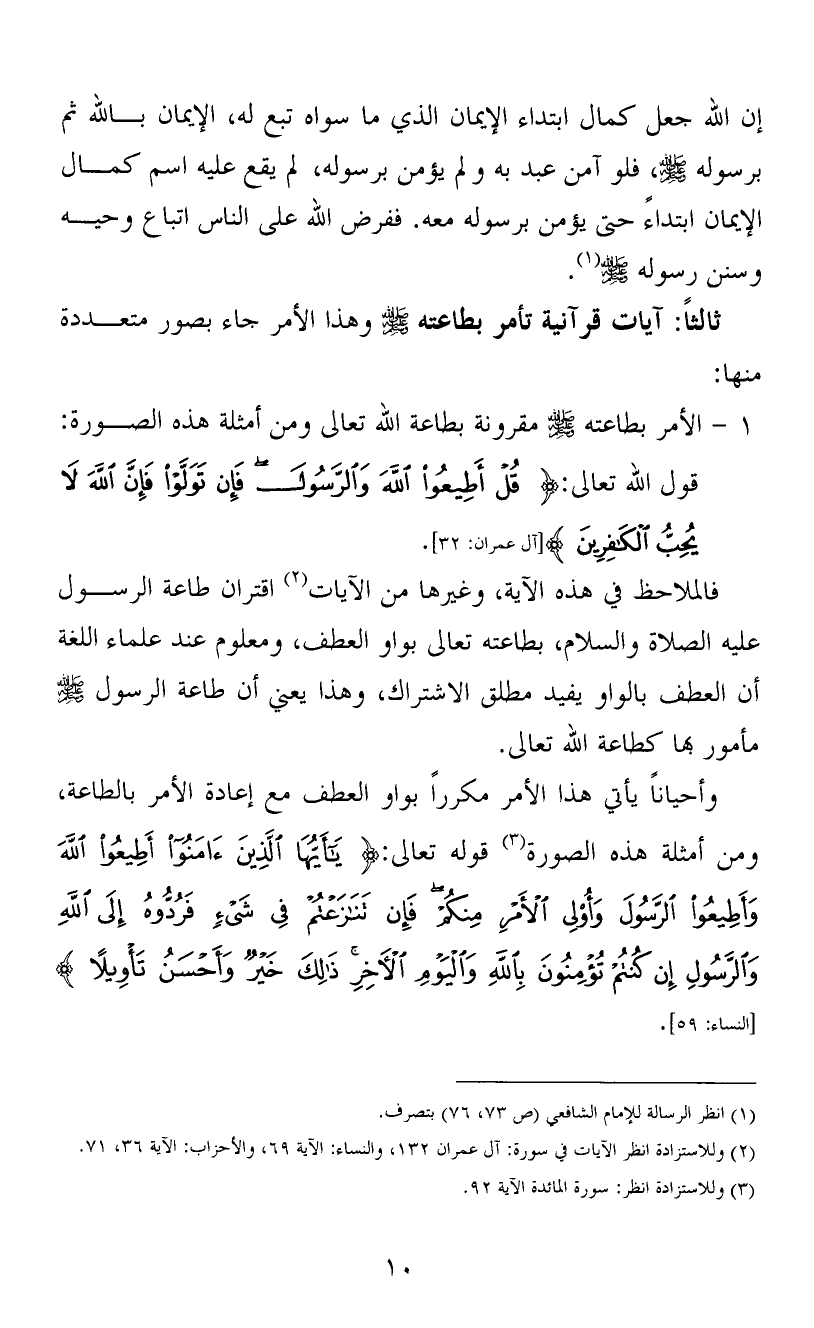 إن الله جعل كمال ابتداء الإيمان الذي ما سواه تبع له، الإيمان بـــالله ثم
برسوله ﷺ، فلو آمن عبد به ولم يؤمن برسوله، لم يقع عليه اسم كمـــال
الإيمان ابتداءً حتى يؤمن برسوله معه. ففرض الله على الناس اتباع وحيـــه
وسنن رسوله ﷺ(١).
ثالثاً: آيات قرآنية تأمر بطاعته ﷺ وهذا الأمر جاء بصور متعـــددة
منها:
١ – الأمر بطاعته ﷺ مقرونة بطاعة الله تعالى ومن أمثلة هذه الصـــورة:
قول الله تعالى:﴿ قُلْ أَطِيعُوا۟ ٱللَّهَ وَٱلرَّسُولَ ۖ فَإِن تَوَلَّوْا۟ فَإِنَّ ٱللَّهَ لَا
يُحِبُّ ٱلْكَـٰفِرِينَ ﴾[آل عمران: ٣٢].
فالملاحظ في هذه الآية، وغيرها من الآيات(٢) اقتران طاعة الرســـول
عليه الصلاة والسلام، بطاعته تعالى بواو العطف، ومعلوم عند علماء اللغة
أن العطف بالواو يفيد مطلق الاشتراك، وهذا يعني أن طاعة الرسول ﷺ
مأمور بها كطاعة الله تعالى.
وأحياناً يأتي هذا الأمر مكرراً بواو العطف مع إعادة الأمر بالطاعة،
ومن أمثلة هذه الصورة(٣) قوله تعالى:﴿ يَـٰٓأَيُّهَا ٱلَّذِينَ ءَامَنُوٓا۟ أَطِيعُوا۟ ٱللَّهَ
وَأَطِيعُوا۟ ٱلرَّسُولَ وَأُو۟لِى ٱلْأَمْرِ مِنكُمْ ۖ فَإِن تَنَـٰزَعْتُمْ فِى شَىْءٍ فَرُدُّوهُ إِلَى ٱللَّهِ
وَٱلرَّسُولِ إِن كُنتُمْ تُؤْمِنُونَ بِٱللَّهِ وَٱلْيَوْمِ ٱلْـَٔاخِرِ ۚ ذَٰلِكَ خَيْرٌ وَأَحْسَنُ تَأْوِيلًا ﴾
[النساء: ٥٩].
(١) انظر الرسالة للإمام الشافعي (ص ٧٣، ٧٦) بتصرف.
(٢) وللاستزادة انظر الآيات في سورة: آل عمران ١٣٢، والنساء: الآية ٦٩، والأحزاب: الآية ٣٦، ٧١.
(٣) وللاستزادة انظر: سورة المائدة الآية ٩٢.
١٠